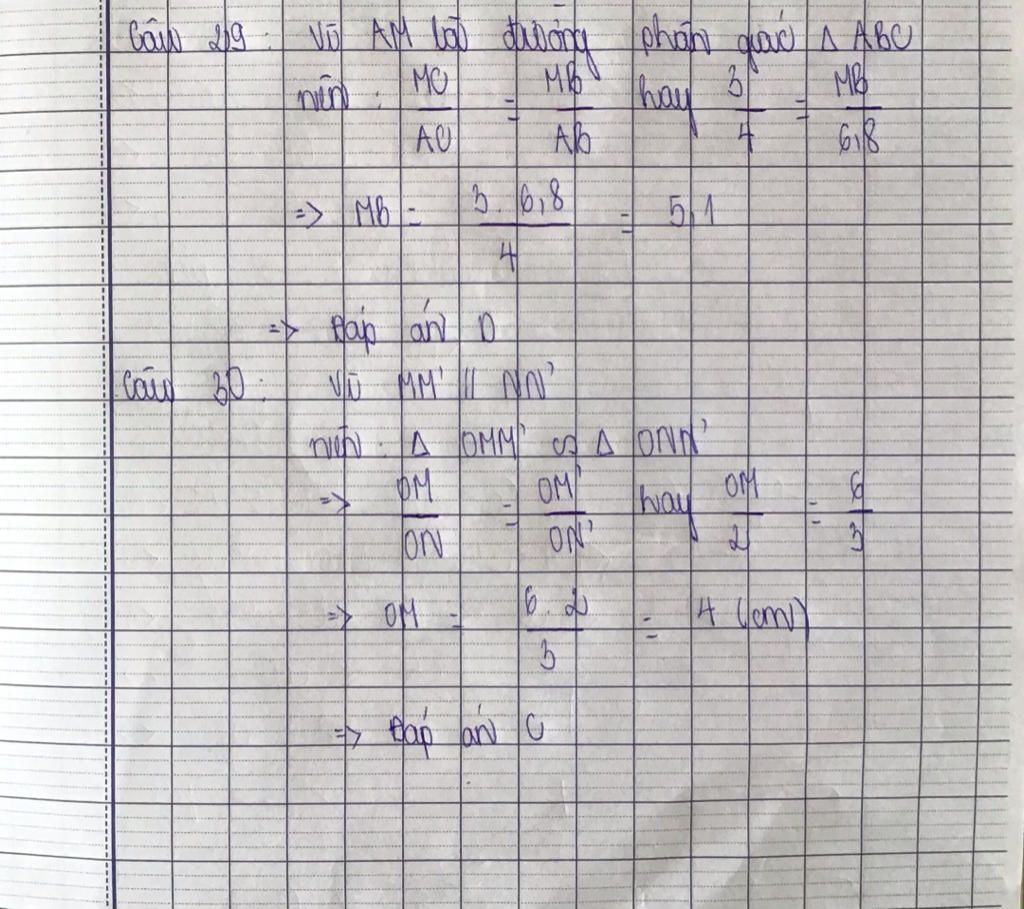 Câu 29: Vì AM là đường phân giác Δ ABC
nên: MC/AC = MB/AB hay 3/4 = MB/6,8
=> MB = 3.6,8/4 = 5,1
=> Đáp án D
Câu 30: Vì MM' // NN'
nên: Δ OMM' ∽ Δ ONN'
=> OM/ON = OM'/ON' hay OM/2 = 6/3
=> OM = 6.2/3 = 4 (cm)
=> Đáp án C